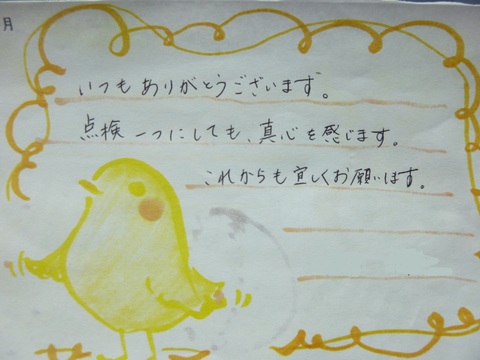 月
いつもありがとうございます。
点検一つにしても、真心を感じます。
これからも宜しくお願います。